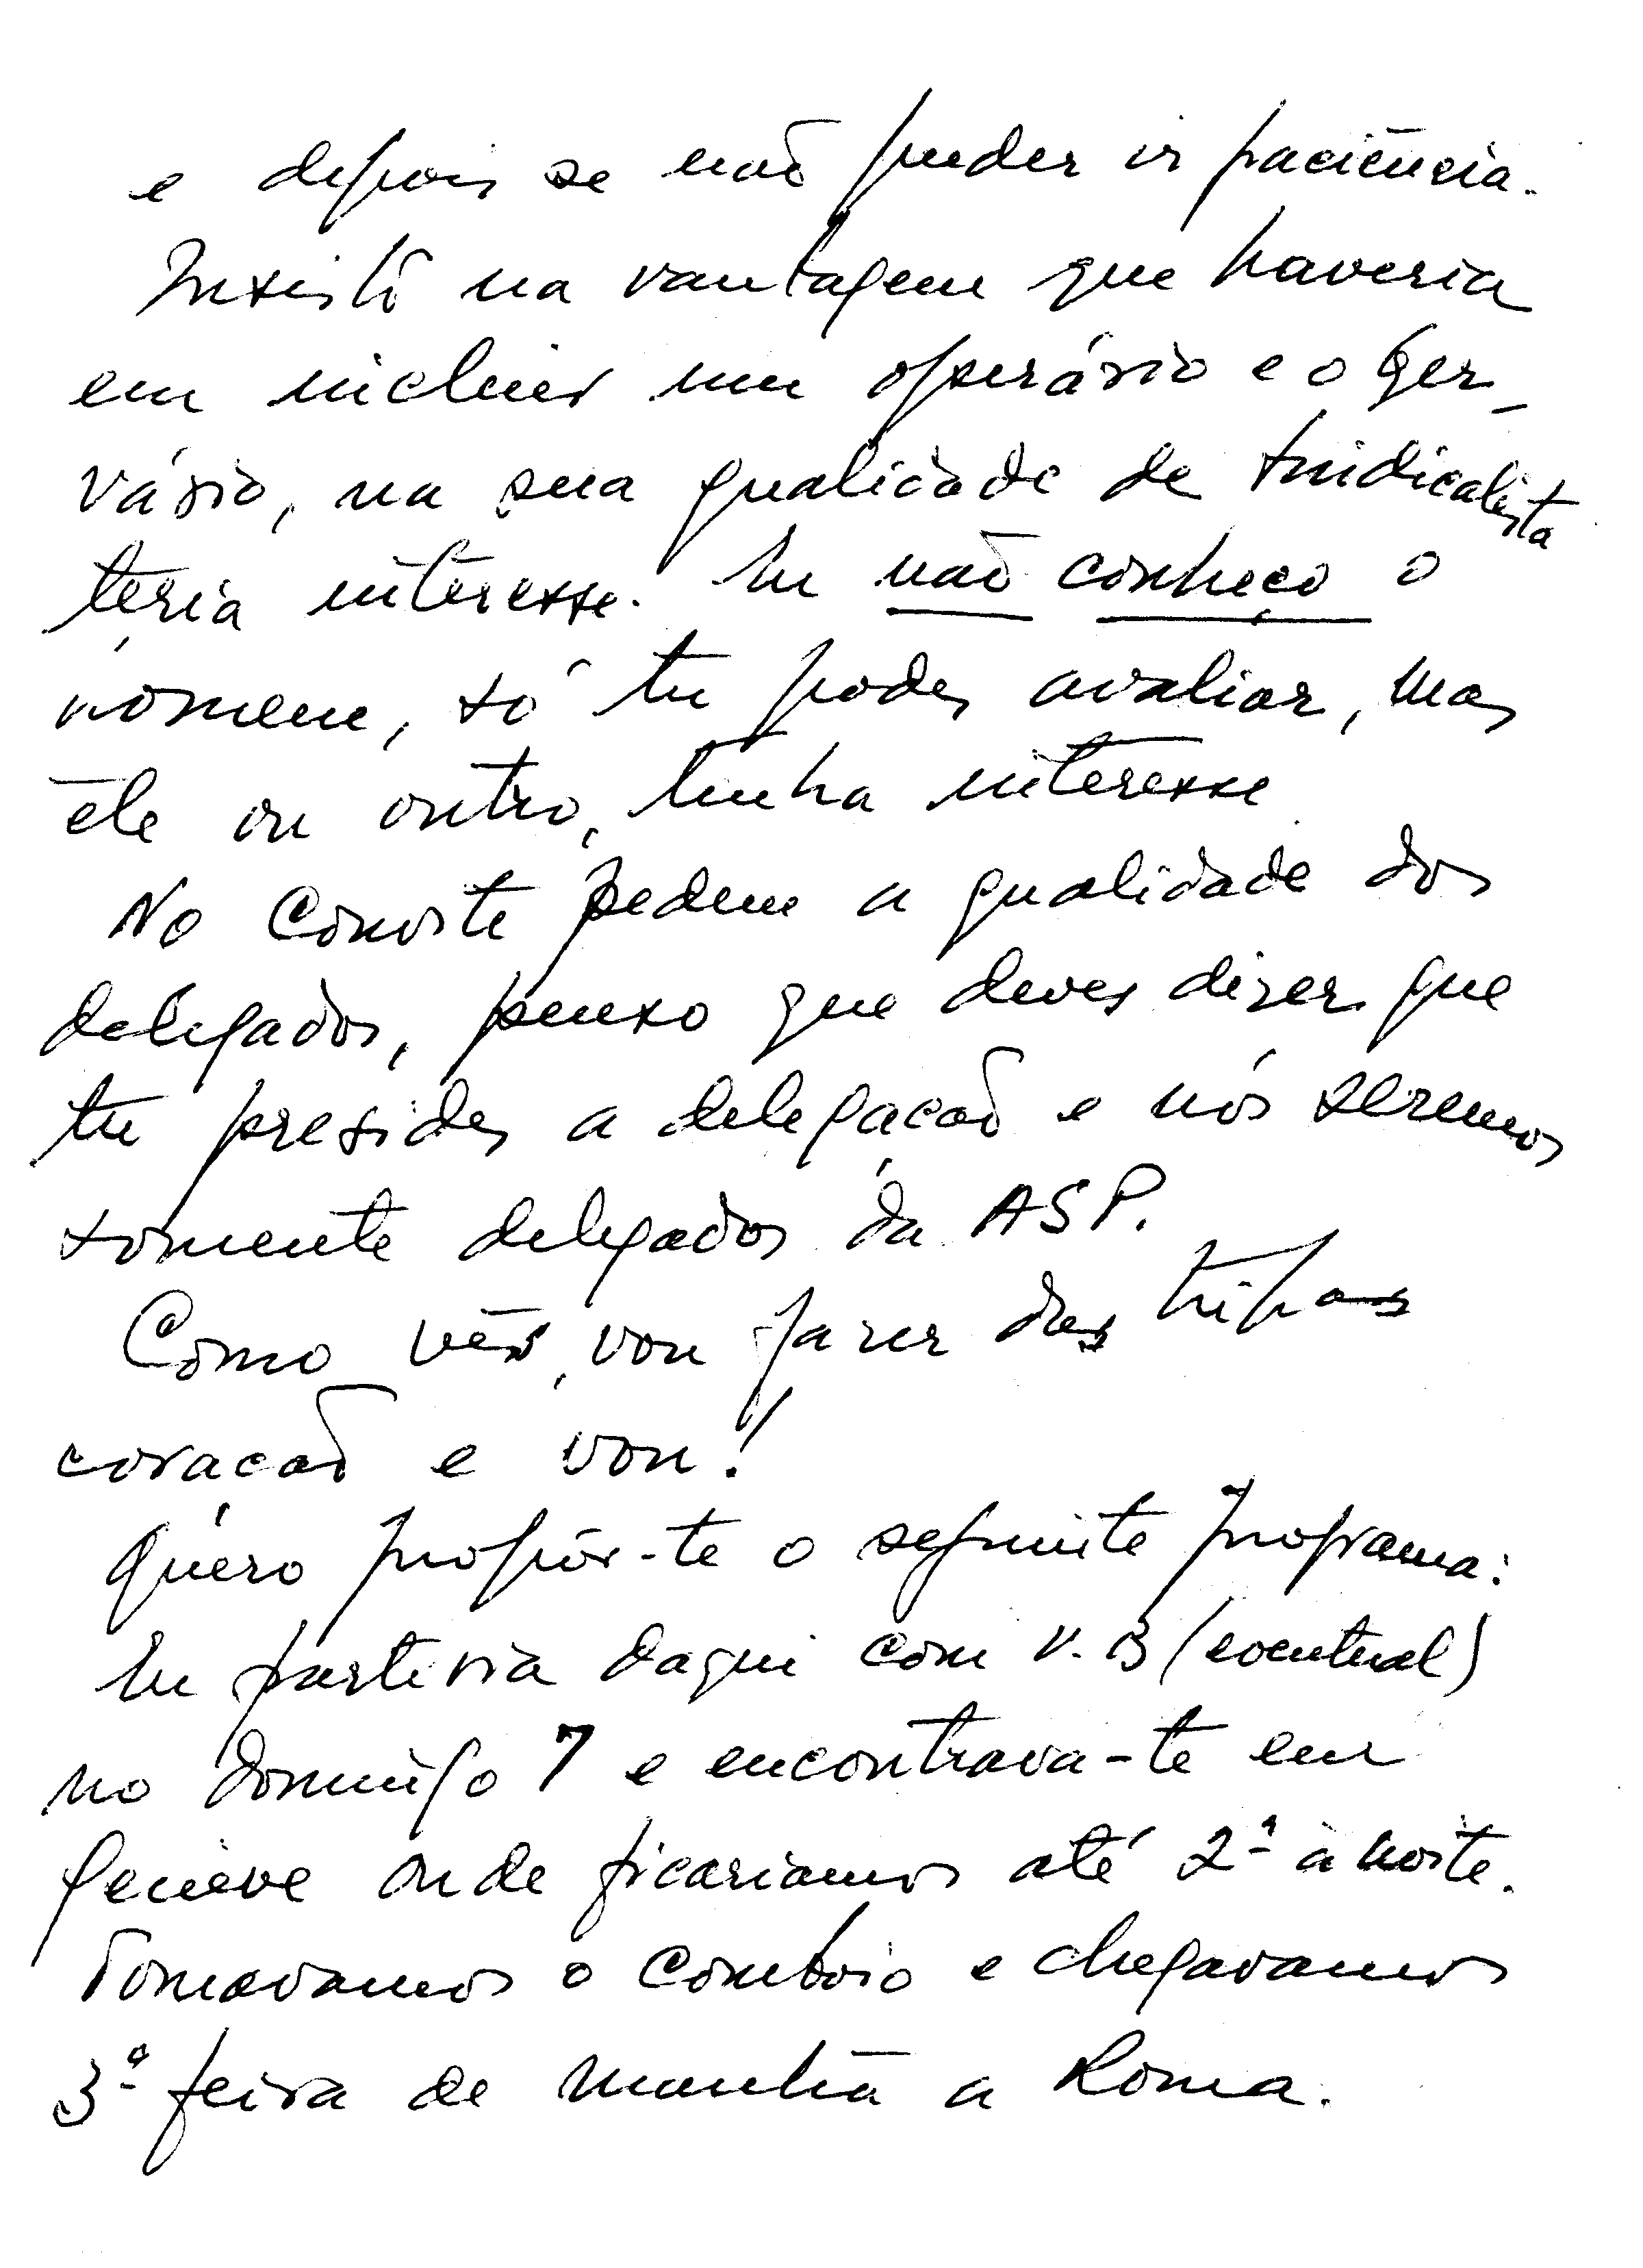 e depois se não puder ir paciência.
Insisto na vantagem que haveria
em incluir um operário e o Ger-
vásio, na sua qualidade de sindicalista
teria interesse. Eu não conheço o
homem, só tu podes avaliar, mas
êle ou outro, tinha interesse.
No Convite pedem a qualidade dos
delegados, penso que deves dizer que
tu presides a delegação e nós seremos
somente delegados da ASP.
Como vês, vou fazer das tripas
coração e vou!
Quero propôr-te o seguinte programa:
Eu partiria daqui com V. B (eventual)
no domingo 7 e encontrava-te em
Genève onde ficariamos até 2ª à noite.
Tomavamos o comboio e chegavamos
3ª feira de manhã a Roma.